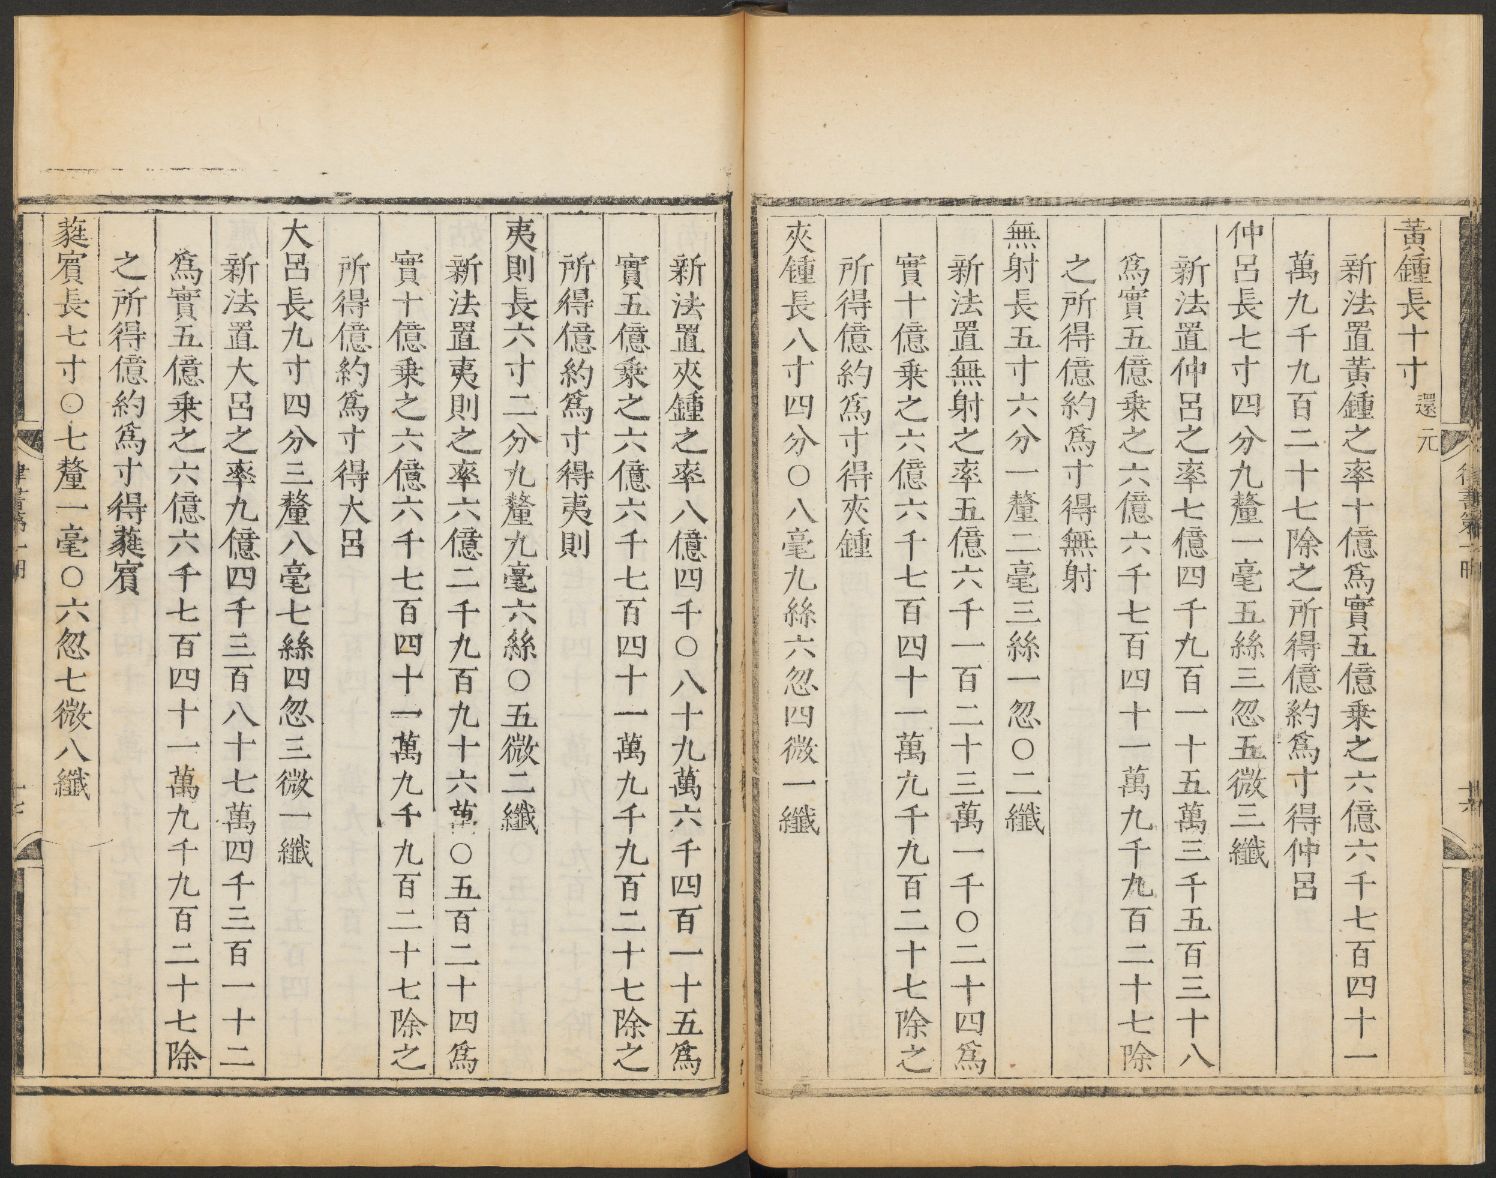 黃鍾長十寸還元
新法置黃鍾之率十億爲實五億乘之六億六千七百四十一
萬九千九百二十七除之所得億約爲寸得仲呂
仲呂長七寸四分九釐一毫五絲三忽五微三纖
新法置仲呂之率七億四千九百一十五萬三千五百三十八
爲實五億乘之六億六千七百四十一萬九千九百二十七除
之所得億約爲寸得無射
無射長五寸六分一釐二毫三絲一忽〇二纖
新法置無射之率五億六千一百二十三萬一千〇二十四爲
實十億乘之六億六千七百四十一萬九千九百二十七除之
所得億約爲寸得夾鍾
夾鍾長八寸四分〇八毫九絲六忽四微一纖
新法置夾鍾之率八億四千〇八十九萬六千四百一十五爲
實五億乘之六億六千七百四十一萬九千九百二十七除之
所得億約爲寸得夷則
夷則長六寸二分九釐九毫六絲〇五微二纖
新法置夷則之率六億二千九百九十六萬〇五百二十四爲
實十億乘之六億六千七百四十一萬九千九百二十七除之
所得億約爲寸得大呂
大呂長九寸四分三釐八毫七絲四忽三微一纖
新法置大呂之率九億四千三百八十七萬四千三百一十二
爲實五億乘之六億六千七百四十一萬九千九百二十七除
之所得億約爲寸得蕤賓
蕤賓長七寸〇七釐一毫〇六忽七微八纖